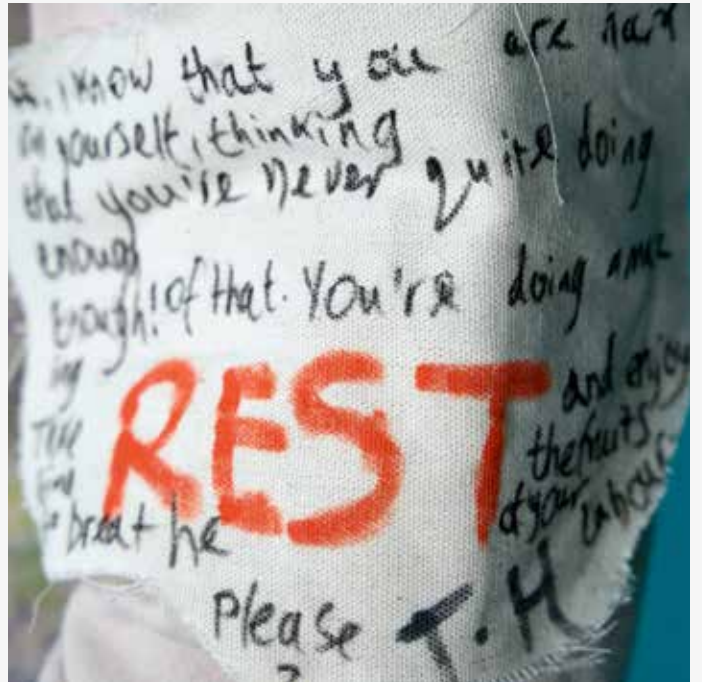 I know that you are hard
on yourself, thinking
that you're never quite doing
enough
Enough! of that. You're doing amaz
ing
REST
and enjoy
the fruits
of your
labour
breathe
please T.H